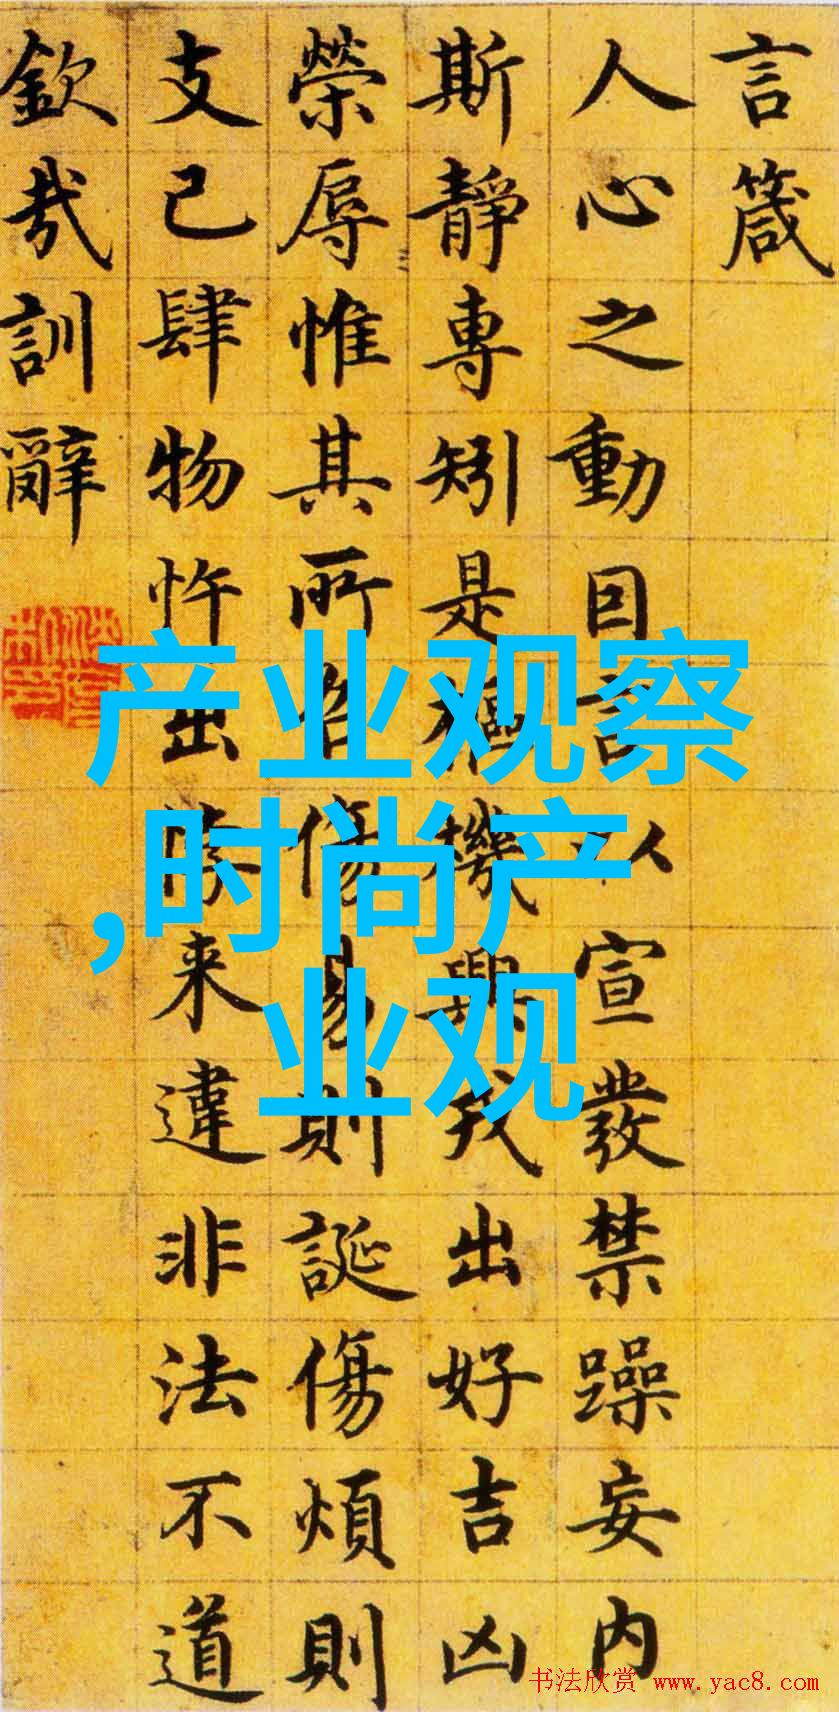 言箴
人心之動因言以宣發禁躁妄内
斯靜專矧是樞機興戎出好吉凶
榮辱惟其所召傷易則誕傷煩則
支己肆物忤出悖来違非法不道
欽哉訓辭
产业观察
,时尚产
业观
书法欣赏 www.yac8.com